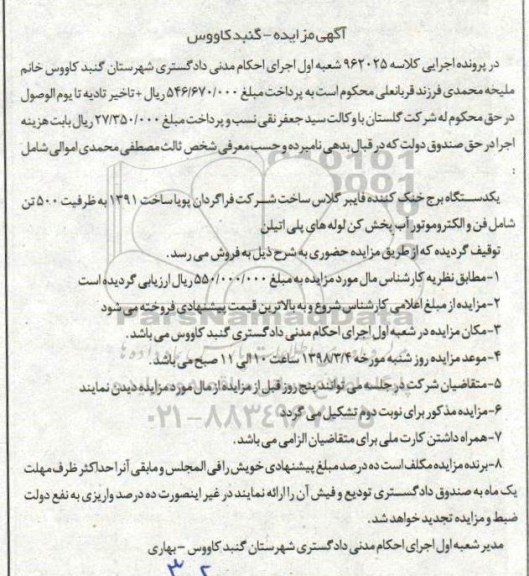 آگهی مزایده - گنبد کاووس
در پرونده اجرایی کلاسه ۹۶۲۰۲۵ شعبه اول اجرای احکام مدنی دادگستری شهرستان گنبد کاووس خانم
ملیحه محمدی فرزند قربانعلی محکوم است به پرداخت مبلغ ۵۴۶/۶۷۰/۰۰۰ ریال + تاخیر تادیه تا یوم الوصول
در حق محکوم له شرکت گلستان با وکالت سید جعفر نقی نسب و پرداخت مبلغ ۲۷/۳۵۰/۰۰۰ ریال بابت هزینه
اجرا در حق صندوق دولت که در قبال بدهی نامبرده و حسب معرفی شخص ثالث مصطفی محمدی اموالی شامل
:
یکدستگاه برج خنک کننده فایبر گلاس ساخت شرکت فراگردان پویا ساخت ۱۳۹۱ به ظرفیت ۵۰۰ تن
شامل فن و الکتروموتور آب پخش کن لوله های پلی اتیلن
توقیف گردیده که از طریق مزایده حضوری به شرح ذیل به فروش می رسد.
۱- مطابق نظریه کارشناس مال مورد مزایده به مبلغ ۵۵۰/۰۰۰/۰۰۰ ریال ارزیابی گردیده است
۲- مزایده از مبلغ اعلامی کارشناس شروع و به بالاترین قیمت پیشنهادی فروخته می شود
۳- مکان مزایده در شعبه اول اجرای احکام مدنی دادگستری گنبد کاووس می باشد.
۴- موعد مزایده روز شنبه مورخه ۱۳۹۸/۳/۴ ساعت ۱۰ الی ۱۱ صبح می باشد.
۵- متقاضیان شرکت در جلسه می توانند پنج روز قبل از مزایده از مال مورد مزایده دیدن نمایند
۶- مزایده مذکور برای نوبت دوم تشکیل می گردد
۷- همراه داشتن کارت ملی برای متقاضیان الزامی می باشد.
۸- برنده مزایده مکلف است ده درصد مبلغ پیشنهادی خویش را فی المجلس و مابقی آنرا حداکثر ظرف مهلت
یک ماه به صندوق دادگستری تودیع و فیش آن را ارائه نمایند در غیر اینصورت ده درصد واریزی به نفع دولت
ضبط و مزایده تجدید خواهد شد.
مدیر شعبه اول اجرای احکام مدنی دادگستری شهرستان گنبد کاووس - بهاری
ParsNamadData
۰۲۱-۸۸۳۴۹۶۷۰-۵